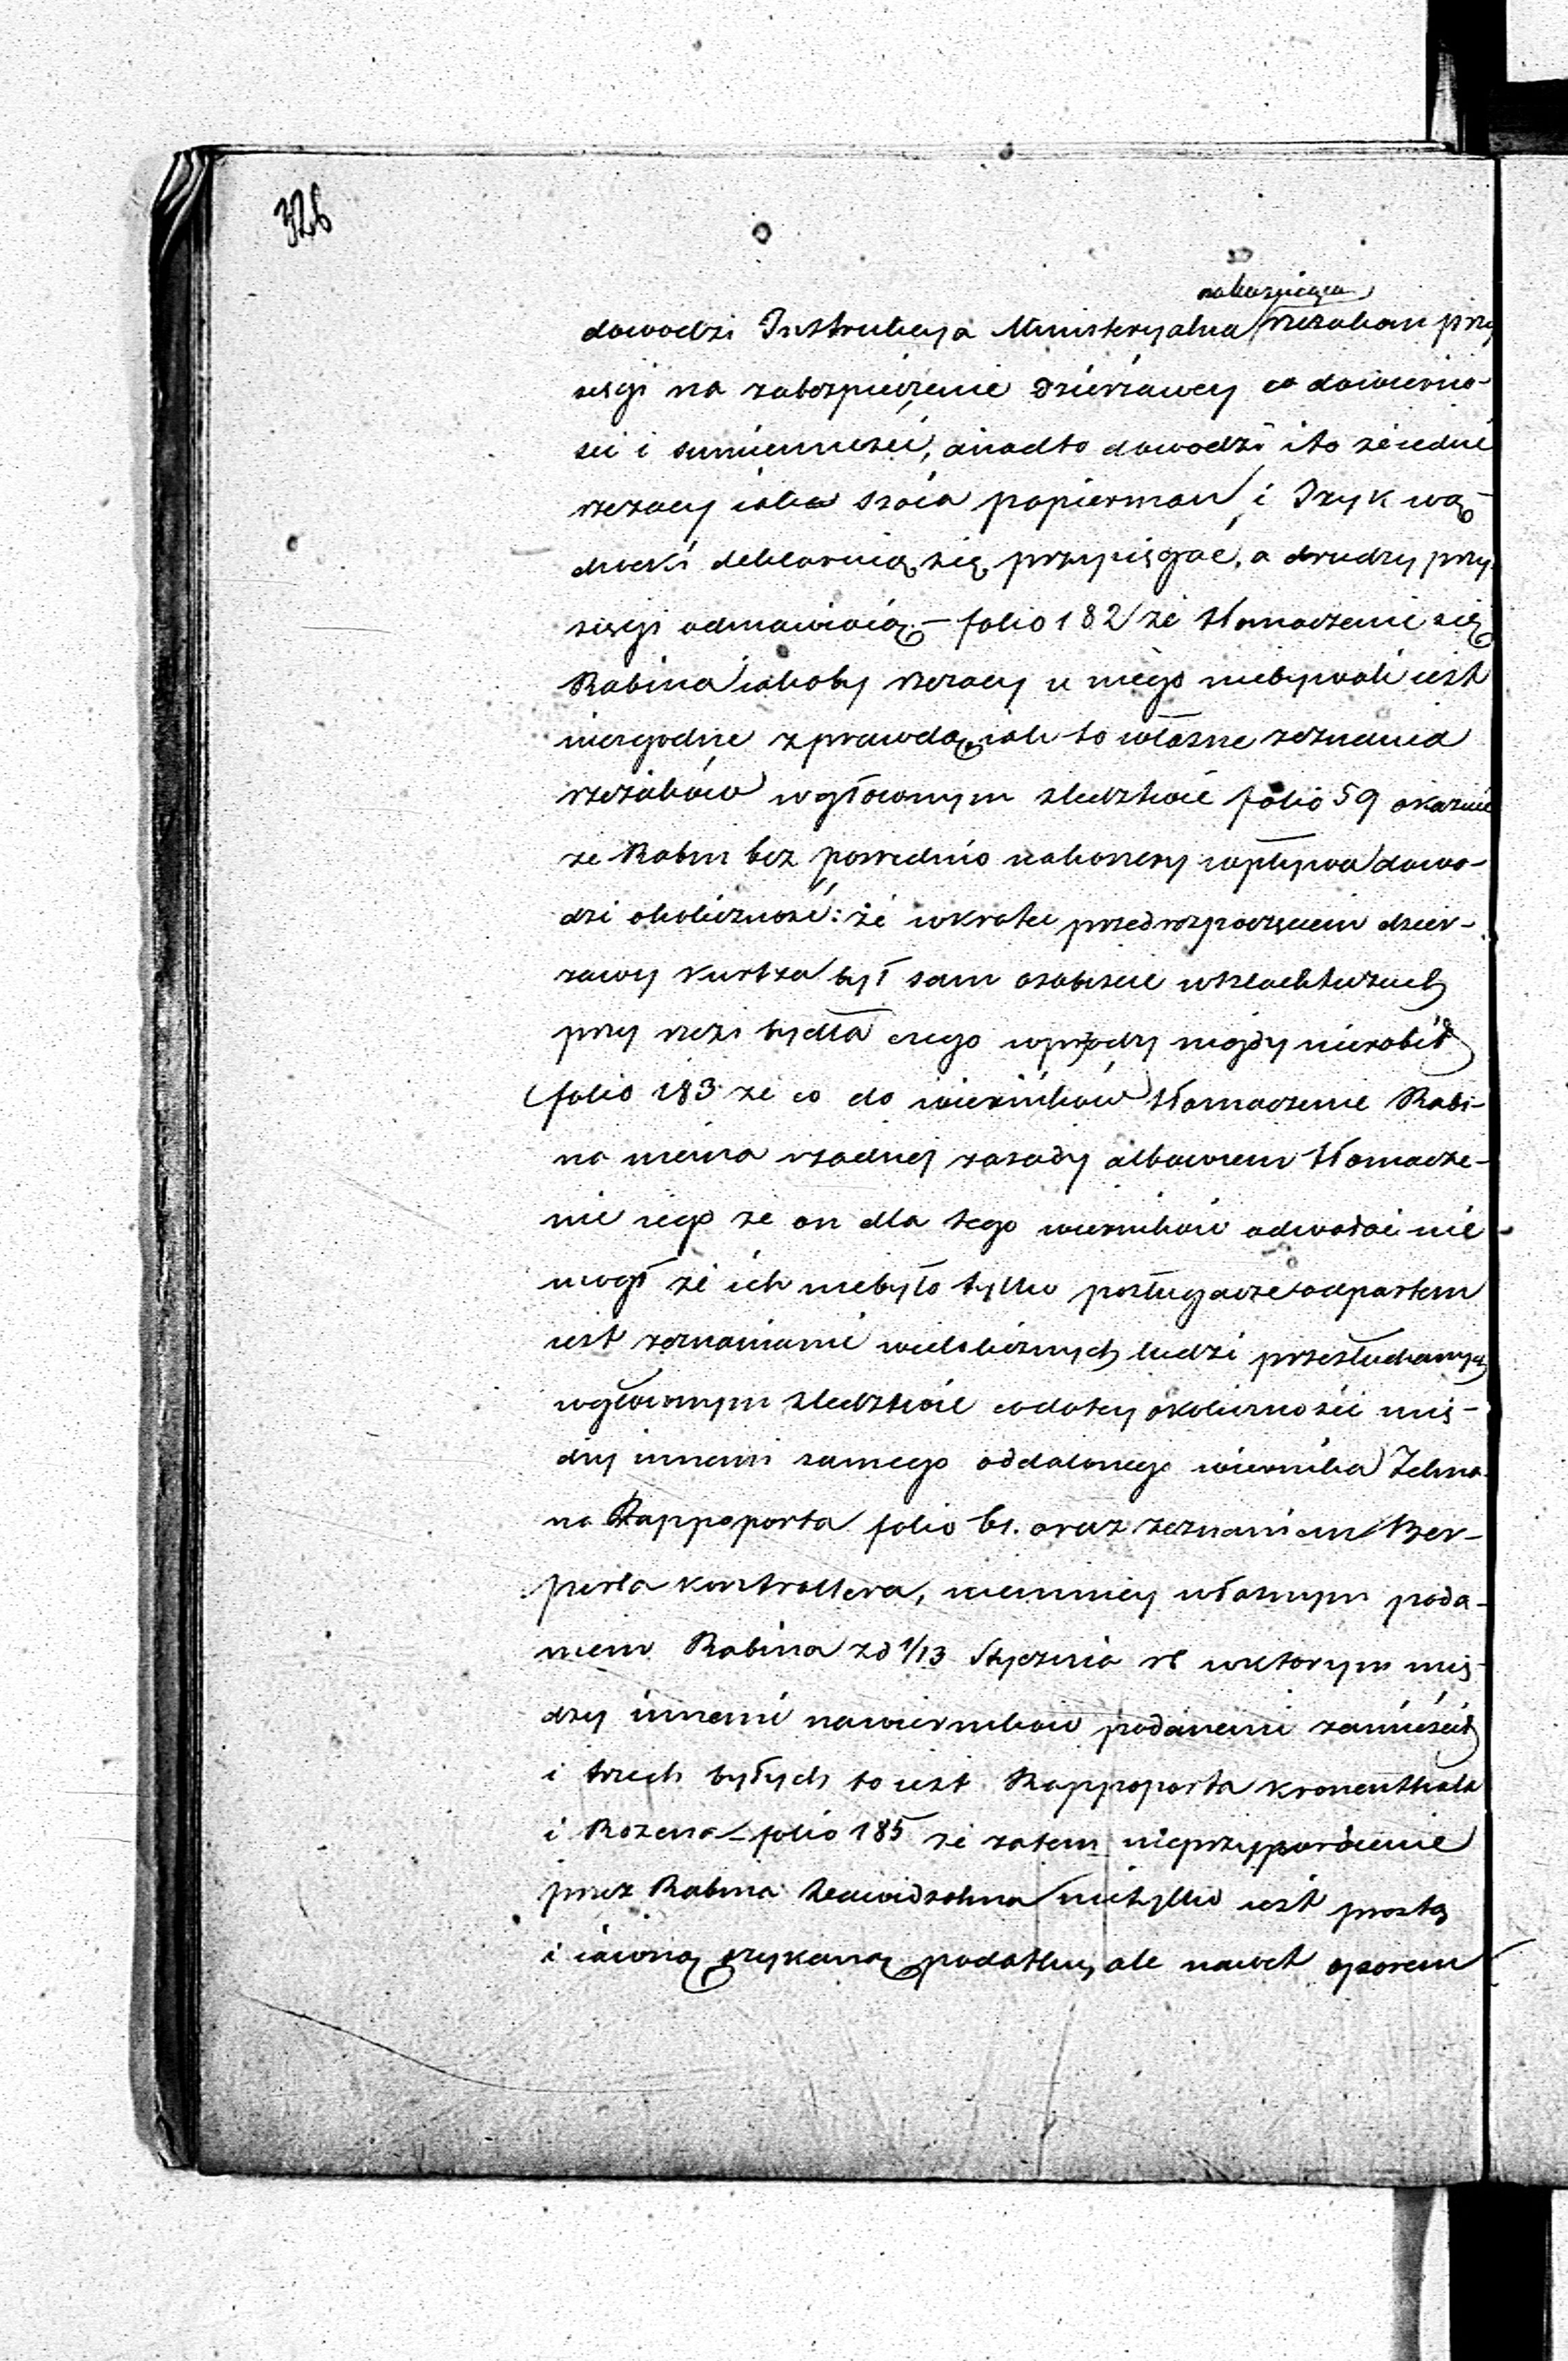 326
nakazuiąca
dowodzi Instrukcya Ministeryalna rzezakom przy
sięgi na zabezpieczenie Dzierżawcy co do wierno-
sci i sumiennosci, a nadto dowodzi i to że iedni
rzezacy iako Szoia papierman i Izyk
deklaruią się przysięgać, a drudzy przy
sięgi odmawiaią – folio 182 że tłomaczenie się
Rabina iakoby rzezacy u niego niebywali iest
niezgodne z prawdą, iak to własne zeznania
rzezaków w głównym sledztwie folio 59 okazuie
ze Rabin bez posrednio na koszery wpływa dowo-
dzi okoliczność: że wkrotce przed rozpoczęciem dzier-
zawy Kurtza był sam osobiscie w szlachtuzach
przy rzezi bydła czego wprzody nigdy nierobił
folio 183 że co do wiernikow tłomaczenie Rabi-
na niema żadney zasady albowiem tłomacze-
nie iego że on dla tego wiernikow odwołać nie
mogł że ich niebyło tylko posługacze odpartem
iest zeznaniami wielolicznych ludzi przesłuchanych
w głównym sledztwie co do tey okoliczności mię-
dzy innemi samego oddalonego wiernika Zelma-
na Rappoporta folio 61. oraz zeznaniem Ber-
perla kontrollera, niemniey własnym poda-
niem Rabina z d 1/13 Stycznia rb w ktorym mię-
dzy innemi na wiernikow podanemi zamieścił
i trzech byłych to iest Rappoporta Kronenthala
i Rozena – folio 185 że zatem
przez Rabina nietylko iest prostą
i iawną szykaną podatku, ale nawet oporem